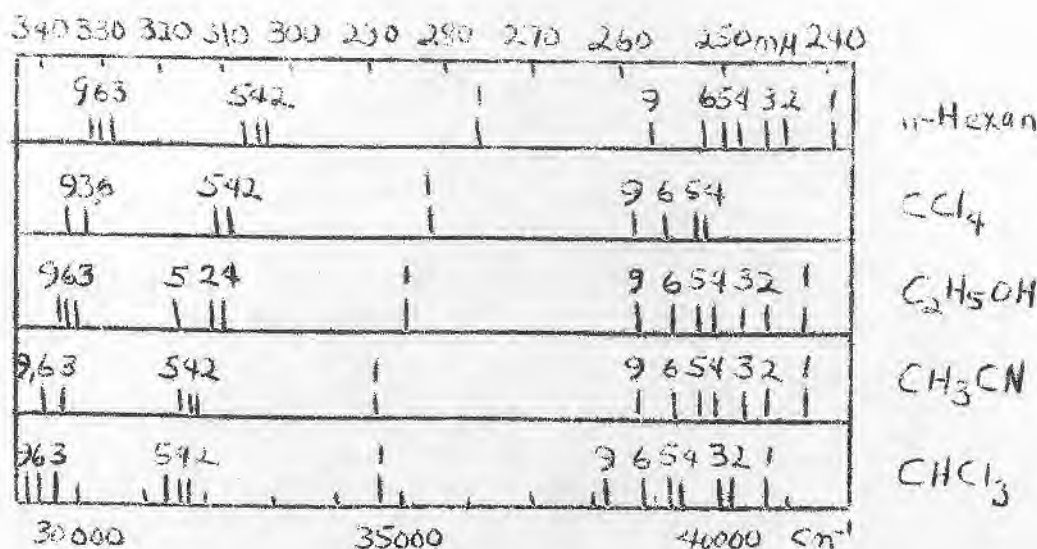 340 330 320 310 300 290 280 270 260 250mμ 240
963 542 1 9 654 32 1 n-Hexan
93,6 542 1 9 6 54 CCl4
963 5 24 1 9 6 54 32 1 C2H5OH
9,63 542 1 9 6 54 32 1 CH3CN
963 542 1 9 6 54 32 1 CHCl3
30000 35000 40000 cm-1